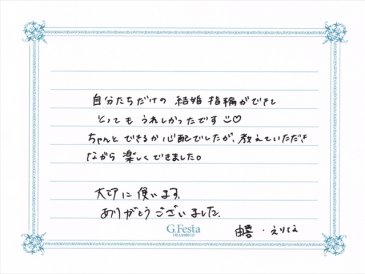 自分たちだけの 結婚 指輪ができて
とっても うれしかったです☺♡
ちゃんと できるか 心配でしたが、教えていただき
ながら 楽しくできました。
大切に 使います。
ありがとう ございました。
G.Festa